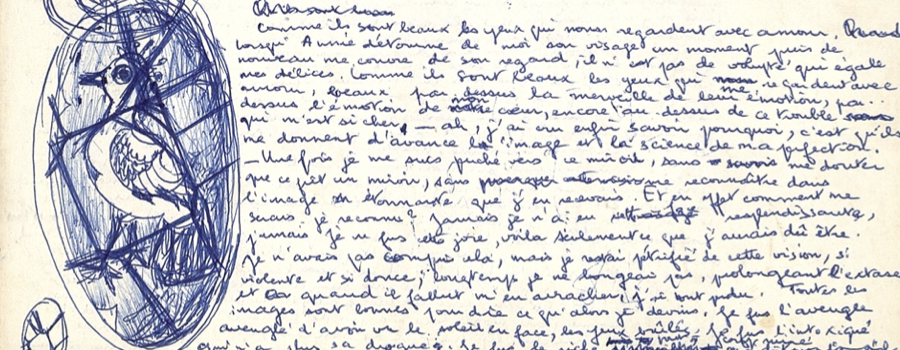 Qu'ils sont beaux
Comme ils sont beaux les yeux qui nous regardent avec amour. Quand
lorsqu' Annie détourne de moi son visage un moment puis de
nouveau me couvre de son regard, il n'est pas de volupté qui égale
mes délices. Comme ils sont beaux les yeux qui me regardent avec
amour, beaux par dessus la merveille de leur émotion, par
dessus l'émotion de mon cœur, encore au dessus de ce trouble
qui m'est si cher, — ah, j'ai cru enfin savoir pourquoi, c'est qu'ils
me donnent d'avance l'image et la science de ma perfection.
— Une fois je me suis penché vers ce miroir, sans me douter
que ce fût un miroir, sans me reconnaître dans
l'image si étonnante que j'en recevais. Et en effet comment me
serais-je reconnu? Jamais je n'ai eu resplendissante,
jamais je ne fus cette joie, voilà seulement ce que j'aurais dû être.
Je n'avais pas compris cela, mais je restai pétrifié de cette vision, si
violente et si douce; longtemps je ne bougeais pas, prolongeant l'extase
et quand il fallut m'en arracher, j'ai tout perdu. Toutes les
images sont bonnes pour dire ce qu'alors je devins. Je fus l'aveugle
aveugle d'avoir vu le soleil en face, les yeux brûlés. Je fus l'intoxiqué
qui n'a plus sa drogue. Je fus le riche